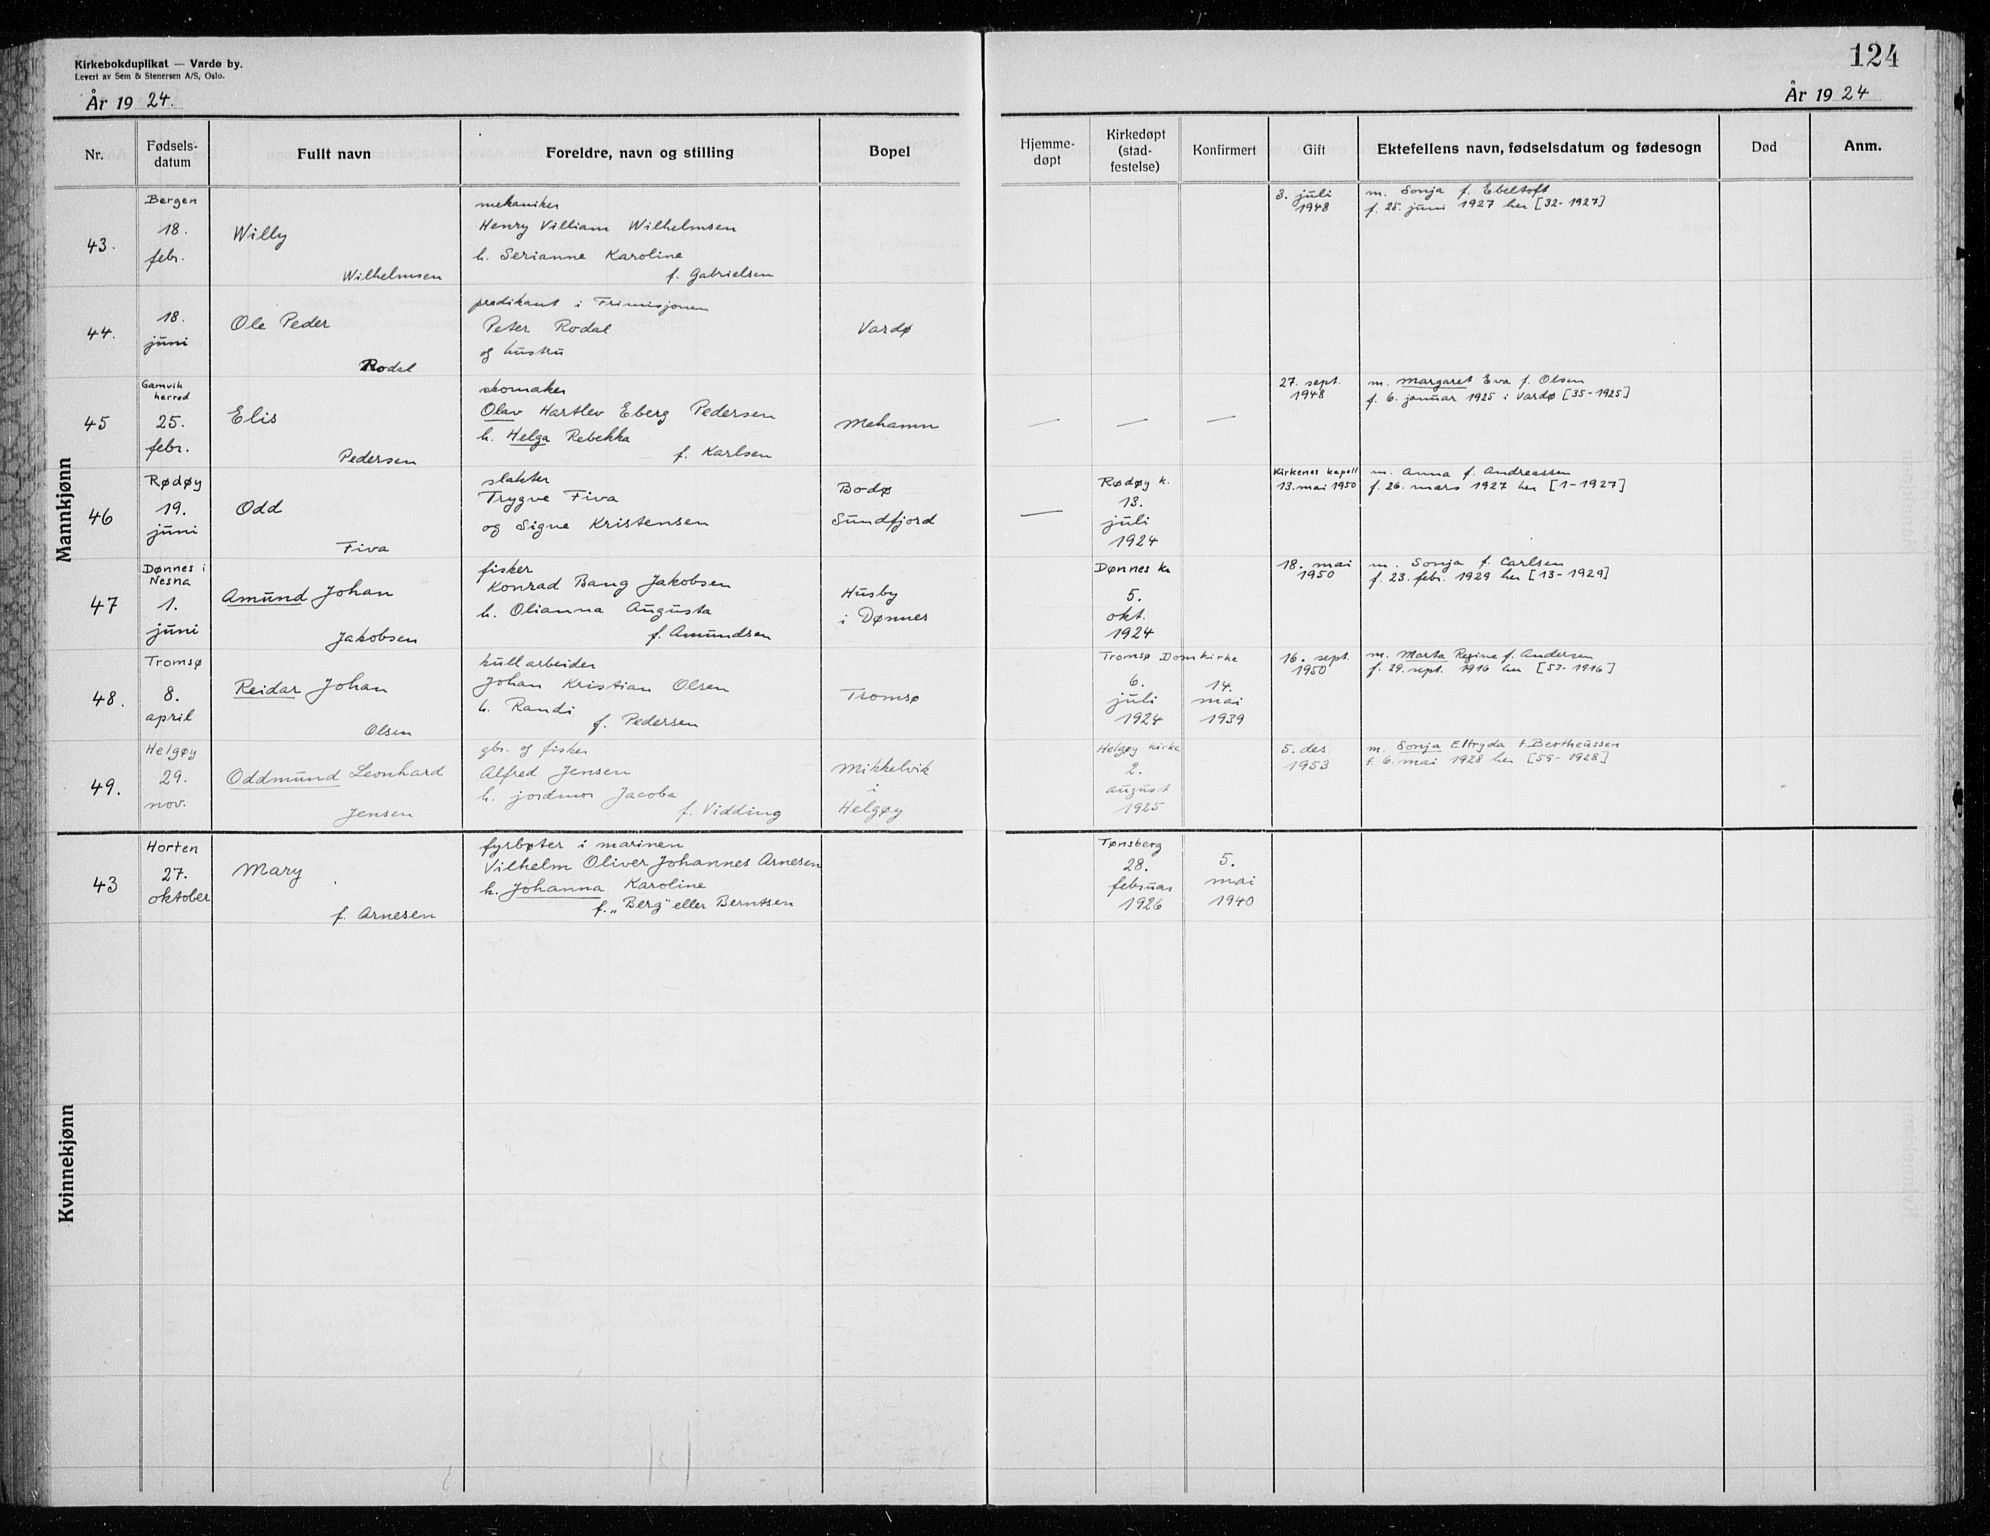 Kirkebokduplikat — Vardø by.
Levert av Sem & Stenersen A/S, Oslo.
År 1924.
124
År 1924
Nr.
Fødsels-
datum
Fullt navn
Foreldre, navn og stilling
Bopel
Hjemme-
døpt
Kirkedøpt
(stad-
festelse)
Konfirmert
Gift
Ektefellens navn, fødselsdatum og fødesogn
Død
Anm.
Mannkjønn
43.
Bergen
18.
febr.
Willy
Wilhelmsen
mekaniker
Henry Villiam Wilhelmsen
h. Serianne Karoline
f. Gabrielsen
3. juli
1948
m. Sonja f. Ebeltoft
f. 25. juni 1927 her [32-1927]
44.
18.
juni
Ole Peder
Rodal
predikant i Frimisjonen
Peter Rodal
og hustru
Vardø
45
Gamvik
herred
25.
febr.
Elis
Pedersen
skomaker
Olav Hartlev Eberg Pedersen
h. Helga Rebekka
f. Karlsen
Mehamn
—
—
—
27. sept.
1948
m. Margaret Eva f. Olsen
f. 6. januar 1925 i Vardø [35-1925]
46
Rødøy
19.
juni
Odd
Fiva
slakter
Trygve Fiva
og Signe Kristensen
Bodø
Sundfjord
—
Rødøy k.
13.
juli
1924
Kirkenes kapell
13. mai 1950
m. Anna f. Andreassen
f. 26. mars 1927 her [1-1927]
47
Dønnes i
Nesna
1.
juni
Amund Johan
Jakobsen
fisker
Konrad Bang Jakobsen
h. Olianna Augusta
f. Amundsen
Husby
i Dønnes
Dønnes k
5.
okt.
1924
18. mai
1950
m. Sonja f. Carlsen
f. 23. febr. 1929 her [13-1929]
48.
Tromsø
8.
april
Reidar Johan
Olsen
kullarbeider
Johan Kristian Olsen
h. Randi
f. Pedersen
Tromsø
Tromsø Domkirke
6.
juli
1924
14.
mai
1939
16. sept.
1950
m. Marta Regine f. Andersen
f. 29. sept. 1916 her [53-1916]
49.
Helgøy
29.
nov.
Oddmund Leonhard
Jensen
gbr. og fisker
Alfred Jensen
h. jordmor Jacoba
f. Vidding
Mikkelvik
i
Helgøy
Helgøy kirke
2.
august
1925
5. des.
1953
m. Sonja Elfryda f. Bertheussen
f. 6. mai 1928 her [59-1928]
Kvinnekjønn
43
Horten
27.
oktober
Mary
f. Arnesen
fyrbøter i marinen
Vilhelm Oliver Johannes Arnesen
h. Johanna Karoline
f. „Berg" eller Berntsen
Tønsberg
28.
februar
1926
5.
mai
1940